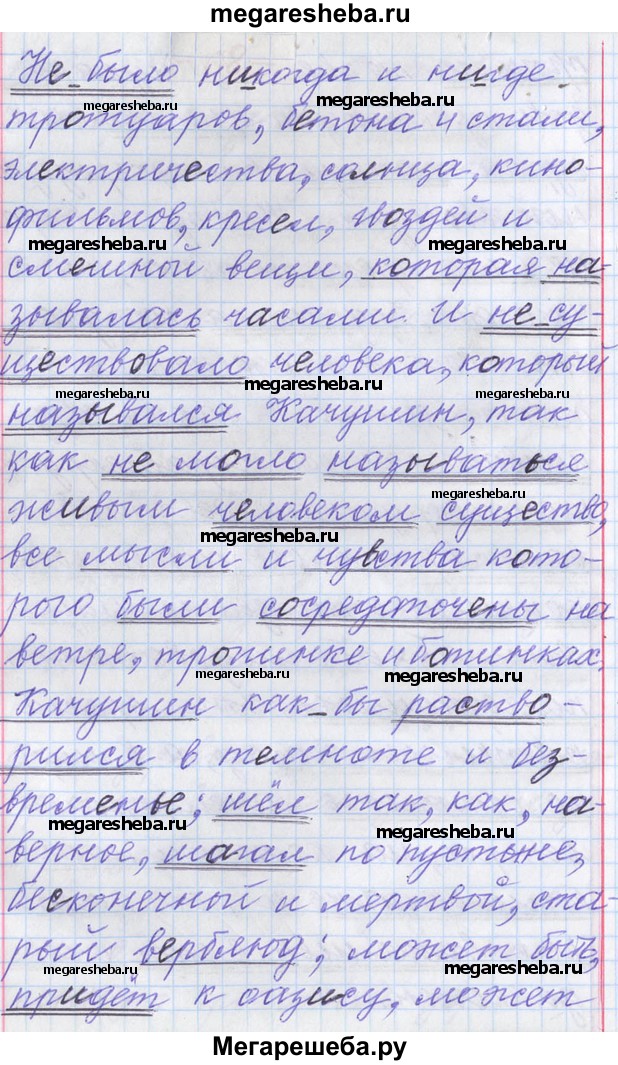 megaresheba.ru
Не было никогда и нигде
megaresheba.ru megaresheba.ru
тротуаров, бетона и стали,
электричества, солнца, кино-
фильмов, кресел, гвоздей и
megaresheba.ru megaresheba.ru
смешной вещи, которая на-
зывалась часами. И не су-
ществовало человека, который
megaresheba.ru megaresheba.ru
назывался Качушин, так
как не могло называться
megaresheba.ru
живым человеком существо,
megaresheba.ru
все мысли и чувства кото-
рого были сосредоточены на
ветре, тропинке и ботинках.
megaresheba.ru megaresheba.ru
Качушин как бы раство-
рился в темноте и без-
временье; шёл так, как, на-
megaresheba.ru megaresheba.ru
верное, шагал по пустыне,
бесконечной и мертвой, ста-
рый верблюд; может быть,
megaresheba.ru megaresheba.ru
придёт к оазису, может
Мегарешеба.ру